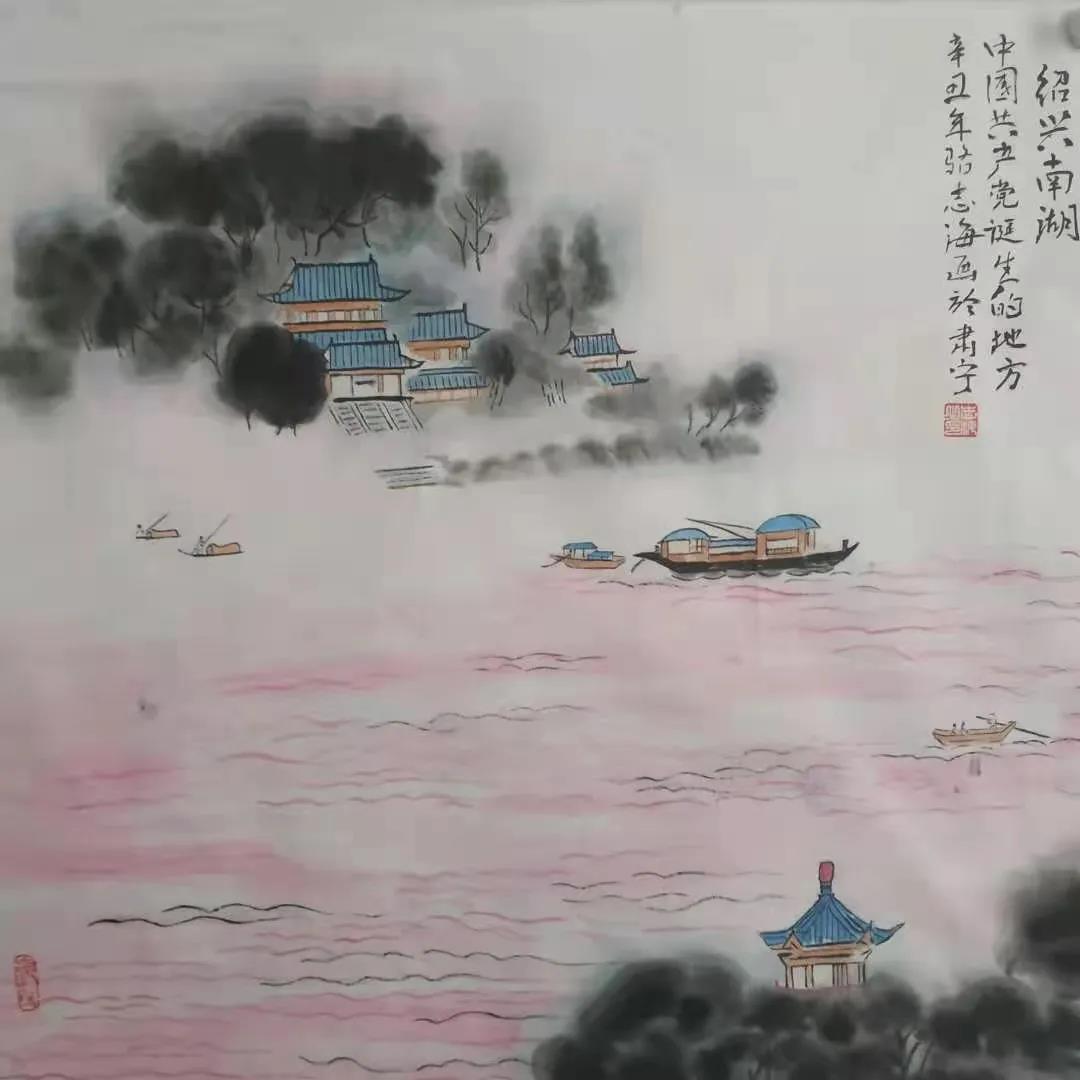 绍兴南湖
中国共产党诞生的地方
辛丑年骆志海画於肃宁